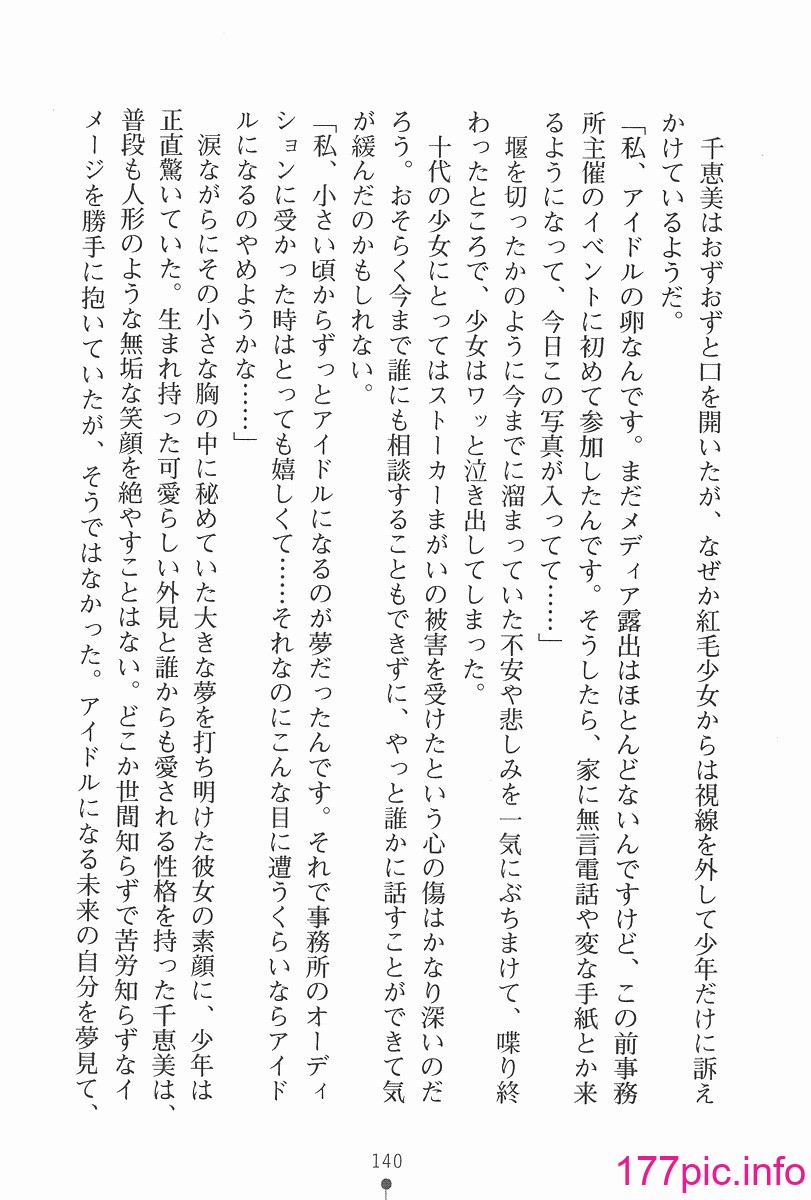 千恵美はおずおずと口を開いたが、なぜか紅毛少女からは視線を外して少年だけに訴え
かけているようだ。
「私、アイドルの卵なんです。まだメディア露出はほとんどないんですけど、この前事務
所主催のイベントに初めて参加したんです。そうしたら、家に無言電話や変な手紙とか来
るようになって、今日この写真が入ってて……」
堰を切ったかのように今までに溜まっていた不安や悲しみを一気にぶちまけて、喋り終
わったところで、少女はワッと泣き出してしまった。
十代の少女にとってはストーカーまがいの被害を受けたという心の傷はかなり深いのだ
ろう。おそらく今まで誰にも相談することもできずに、やっと誰かに話すことができて気
が緩んだのかもしれない。
「私、小さい頃からずっとアイドルになるのが夢だったんです。それで事務所のオーディ
ションに受かった時はとっても嬉しくて……それなのにこんな目に遭うくらいならアイド
ルになるのやめようかな……」
涙ながらにその小さな胸の中に秘めていた大きな夢を打ち明けた彼女の素顔に、少年は
正直驚いていた。生まれ持った可愛らしい外見と誰からも愛される性格を持った千恵美は、
普段も人形のような無垢な笑顔を絶やすことはない。どこか世間知らずで苦労知らずなイ
メージを勝手に抱いていたが、そうではなかった。アイドルになる未来の自分を夢見て、
140
177pic.info